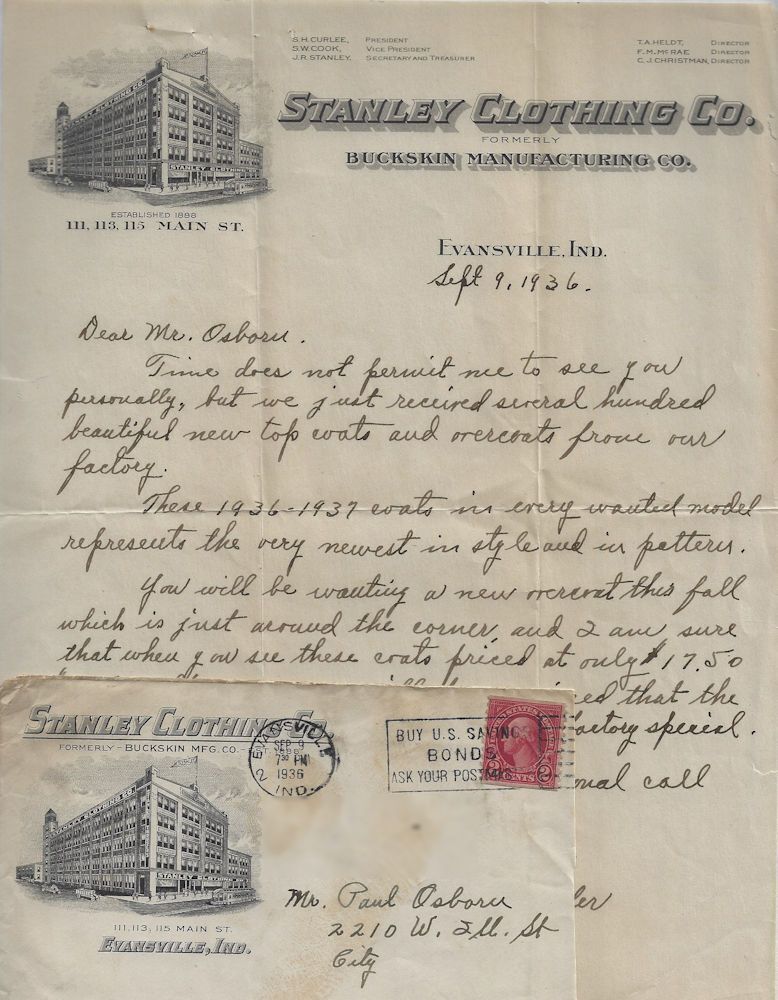 S.H. CURLEE, PRESIDENT
S.W. COOK, VICE PRESIDENT
J.R. STANLEY, SECRETARY AND TREASURER
T.A. HELDT, DIRECTOR
F.M. MCRAE DIRECTOR
C.J. CHRISTMAN, DIRECTOR
STANLEY CLOTHING CO.
FORMERLY
BUCKSKIN MANUFACTURING CO.
STANLEY CLOTHING CO.
STANLEY CLOTHING
ESTABLISHED 1888
111, 113, 115 MAIN ST.
EVANSVILLE, IND.
Sept 9, 1936.
Dear Mr. Osborn.
Time does not permit me to see you
personally, but we just received several hundred
beautiful new top coats and overcoats from our
factory.
These 1936-1937 coats in every wanted model
represents the very newest in style and in pattern.
You will be wanting a new overcoat this fall
which is just around the corner, and I am sure
that when you see these coats priced at only $17.50
that the
factory special.
call
STANLEY CLOTHING Co.
FORMERLY - BUCKSKIN MFG. CO. - EST.
EVANSVILLE
SEP 9
7 30 PM
1936
2 IND.
BUY U.S. SAVINGS
BONDS
ASK YOUR POSTM
UNITED STATES
2 CENTS 2
STANLEY CLOTHING CO.
STANLEY CLOTHING
111, 113, 115 MAIN ST.
EVANSVILLE, IND.
Mr. Paul Osborn
2210 W. Ill. St
City